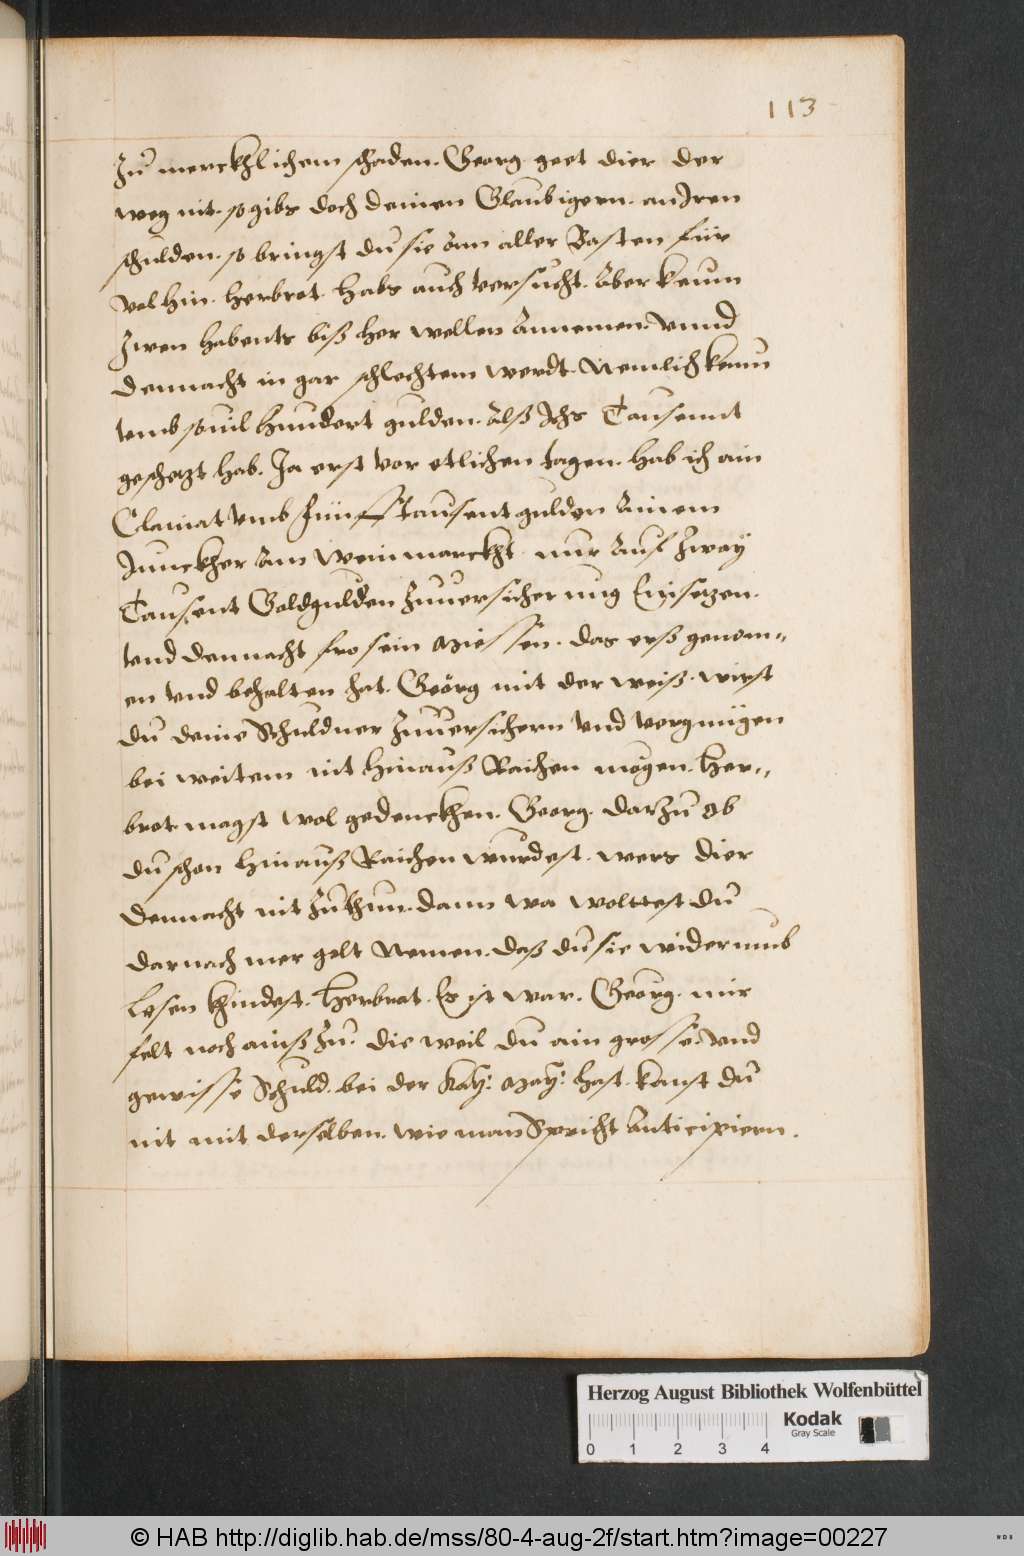 113
Zu merckhlichem schaden. Georg. geet dier der
weg nit. so gibs doch deinen Glaubigern. an Iren
schulden. so bringst du sie ann aller Basten für
vol hin. Herbrot. Habs auch versucht. Aber kaum
Zwen habents biß her wellen Annemen. Vnnd
dennacht in gar schlechtem werdt. Nemlich kaum
vmb souil hundert gulden. Alß Ichs Tausennt
geschetzt hab. Ja erst vor etlichen tagen. hab ich ain
Clainat vmb Fünfftausent gulden Ainem
Junckher Am Weinmarckht. nur Auf Zway
Tausent Goldgulden Zuuersicherung Einsetzen.
vnd dennacht fro sein miessen. das erß genom=
en vnd behalten hat. Georg mit der weiß. wirst
du deine Schuldner Zuuersichern vnd vergnügen
bei weitem nit hinauß Raichen mögen. Her=
brot. magst wol gedenckhen. Georg. darzu ob
du schon hinauß Raichen wurdest. wers dier
dennacht nit Zuthun. dann wa wolttest du
darnach mer gelt Nemen. daß du sie widerumb
lesen khindest. Herbrot. Es ist war. Georg. mir
felt noch ainß Zu. die weil du ain grosse. vnd
gewisse Schuld. bei der Kay: May: hast. kanst du
nit mit derselben. wie man Spricht Anticipiern.
Herzog August Bibliothek Wolfenbüttel
Kodak
Gray Scale
0 1 2 3 4
© HAB http://diglib.hab.de/mss/80-4-aug-2f/start.htm?image=00227